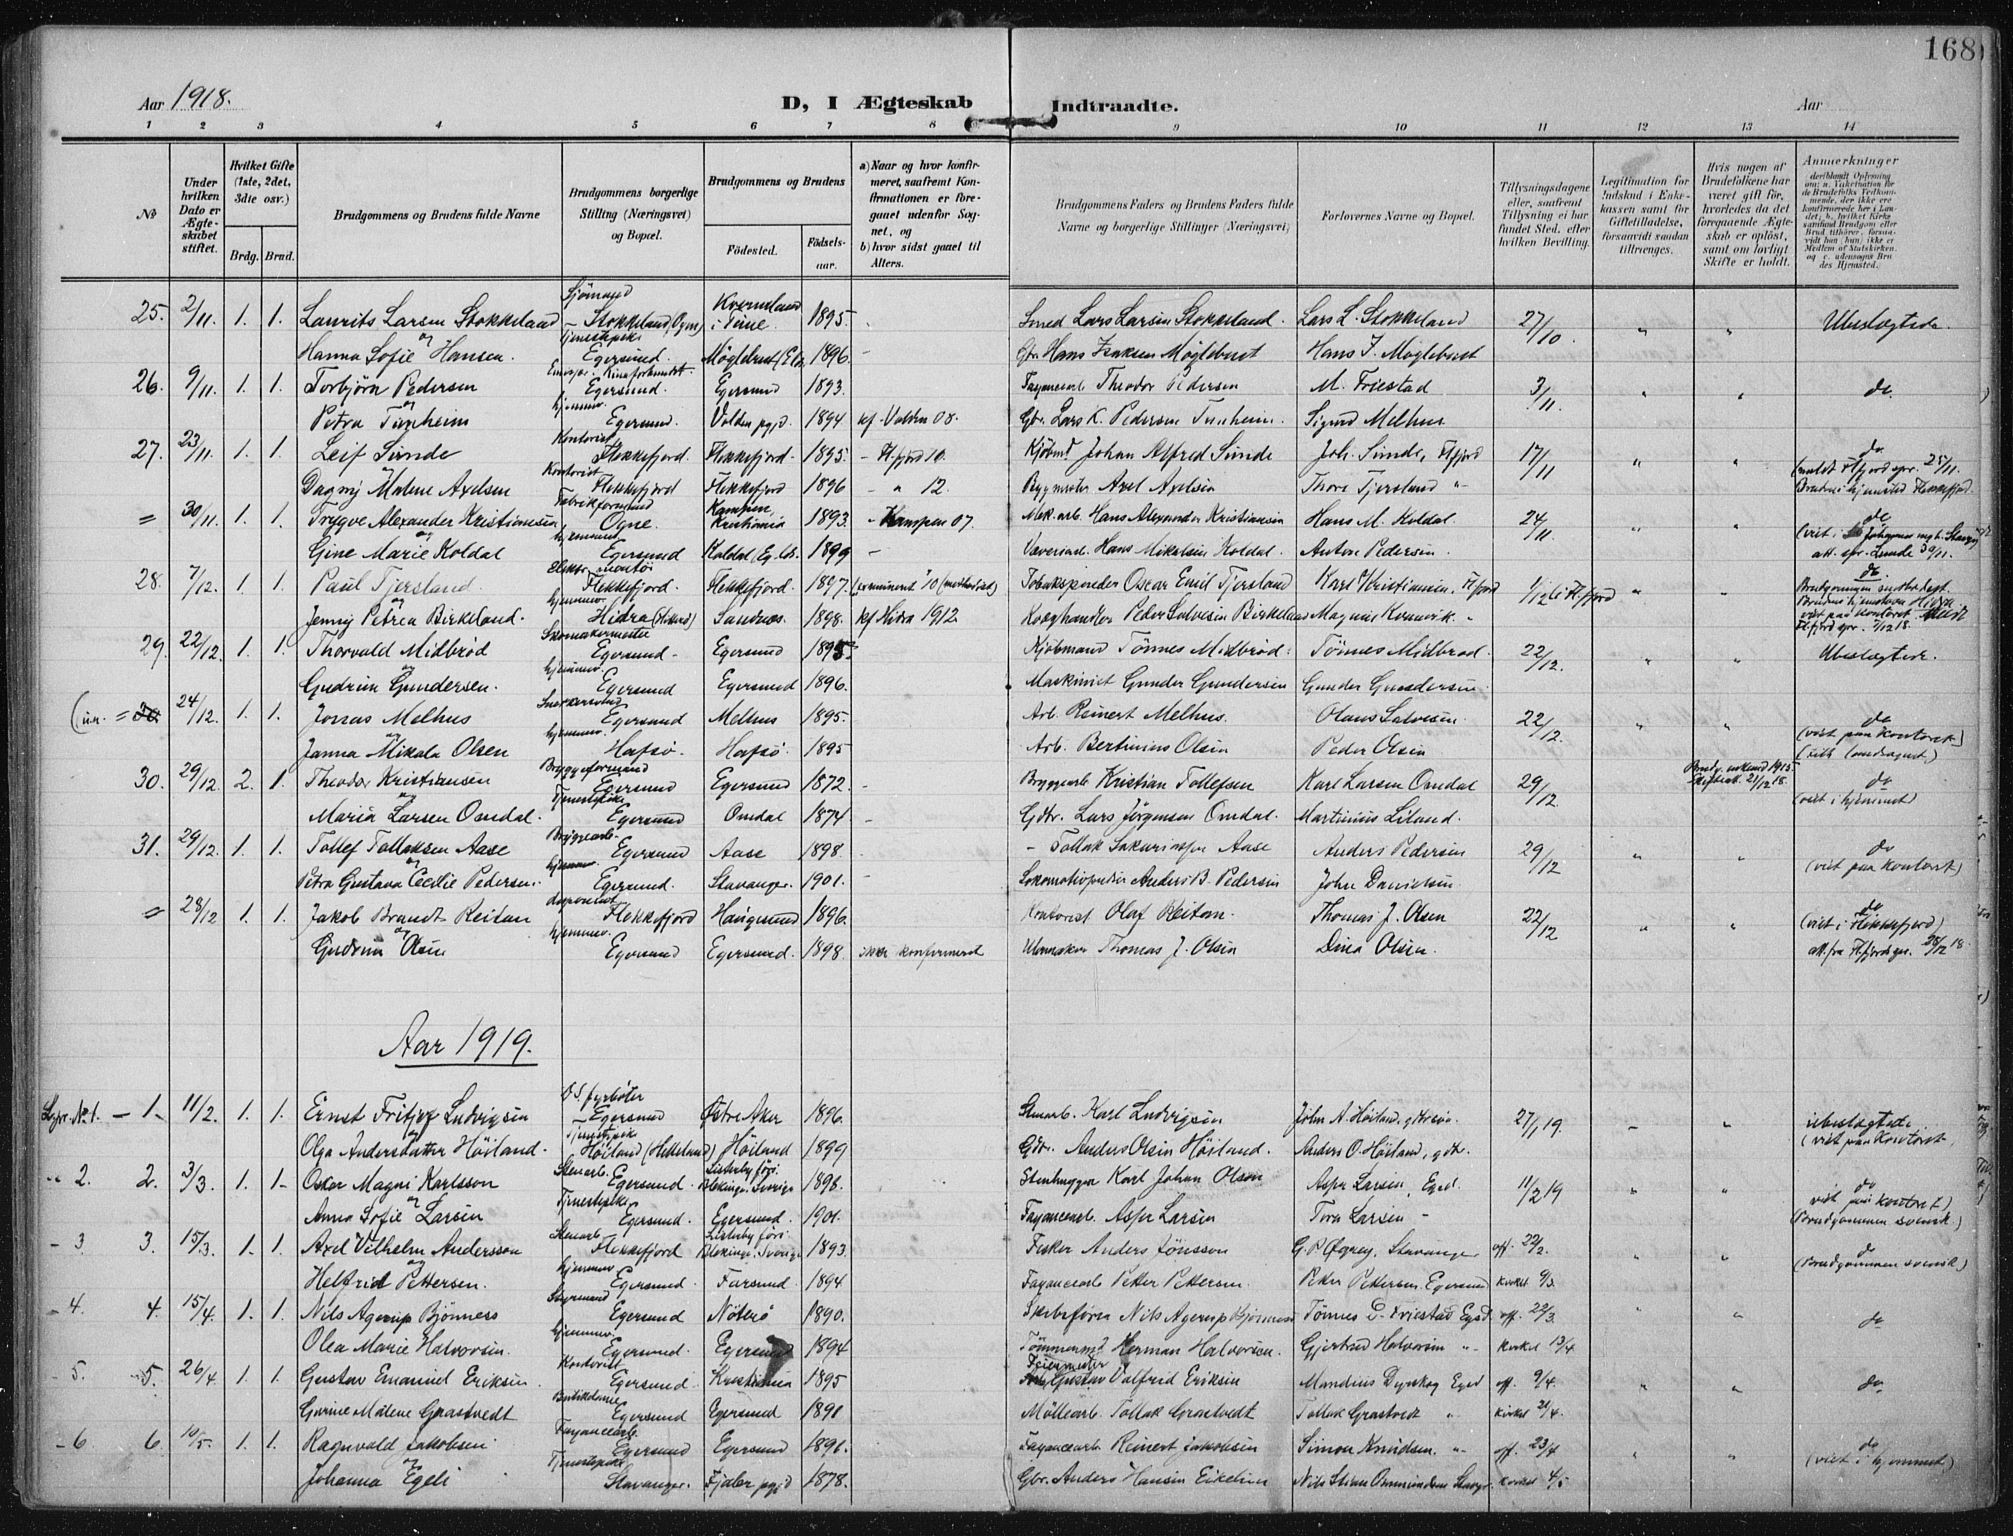 168
Aar 1918.
D, I Ægteskab Indtraadte.
Aar
1 2 3 4 5 6 7 8 9 10 11 12 13 14
№
Under hvilken Dato er Ægteskabet stiftet.
Hvilket Gifte (1ste, 2det, 3die osv.)
Brdg. Brud.
Brudgommens og Brudens fulde Navne
Brudgommens borgerlige Stilling (Næringsvei) og Bopæl.
Brudgommens og Brudens
Fødested.
Fødselsaar.
a) Naar og hvor konfirmeret, saafremt Konfirmationen er foregaaet udenfor Sognet, og
b) hvor sidst gaaet til Alters.
Brudgommens Faders og Brudens Faders fulde Navne og borgerlige Stillinger (Næringsvei)
Forlovernes Navne og Bopæl.
Tillysningsdagene eller, saafremt Tillysning ei har fundet Sted, efter hvilken Bevilling.
Legitimation for Indskud i Enkekassen samt for Giftetilladelse, forsaavidt saadan tiltrænges.
Hvis nogen af Brudefolkene har været gift før, hvorledes da det foregaaende Ægteskab er opløst, samt om lovligt Skifte er holdt.
Anmerkninger
25. 2/11. 1. 1. Laurits Larsen Stokkeland Sjømand – Stokkeland, Ogne Kverneland i Time. 1895. Smed Lars Larsen Stokkeland. Lars L. Stokkeland 27/10. " " Ubeslægtede.
og Hanna Sofie Hansen. Tjenestepike Egersund. Møglebust 1896. – Gbr. Hans Isaksen Møglebust Hans I. Møglebust
26. 9/11. 1. 1. Torbjørn Pedersen Egersund. Egersund 1893. Fayancearb. Theodor Pedersen M. Friestad 3/11. " " do.
og Petra Tunheim hjemmev. Egersund. Volden pgjd. 1894 kf. Volden 08. Gbr. Lars K. Pedersen Tunheim. Sigurd Melhus
27. 23/11. 1. 1. Leif Sunde Kontorist Flekkefjord. Flekkefjord. 1895. – Fl.fjord 10. Kjøbmd Johan Alfred Sunde Joh. Sunde, Flfjord 17/11 " " do
Dagny Malene Axelsen Kontorist Flekkefjord Flekkefjord 1896 – " 12. Bygmester Axel Axelsen Thore Tjersland " Brudens hjemsted Flekkefjord.
= 30/11. 1. 1. Trygve Alexander Kristiansen Fabrikformand Ogne. Kampen, Kristiania 1893. – Kampen 07. Mek. arb. Hans Alexander Kristiansen Hans M. Koldal 24/11. " " do
og Gine Marie Koldal hjemmev. Egersund Koldal Eg. lds. 1899 – Væveriarb. Hans Mikalsen Koldal. Anton Pedersen. att. spr. Lunde 30/11.
28. 7/12. 1. 1. Paul Tjersland Elektr. montør Flekkefjord. Flekkefjord. 1897. Tobakspinder Oscar Emil Tjersland Karl Kristiansen, Flfjord 1/12 i Fl.fjord " " do
og Jenny Petrea Birkeland. hjemmev. Hidra Sandnes. 1898. kf Hidra 1912. Peder Salvesen Birkeland Magnus Kvinnvik. "
29. 22/12. 1. 1. Thorvald Midbrød Skomakermester Egersund. Egersund 1895. Kjøbmand Tønnes Midbrød. Tønnes Midbrød. 22/12. " " Ubeslægtede.
og Gudrun Gundersen. hjemmev. Egersund Egersund 1896. Maskinist Gunder Gundersen Gunder Gundersen.
= 30. 24/12. 1. 1. Jonas Melhus Snekkersvend Egersund Melhus 1895. Arb. Reinert Melhus. Olaus Salvesen 22/12. " " do (viet paa kontoret)
og Janna Mikala Olsen hjemmev. Hafsø. Hafsø. 1895 Arb. Bertinius Olsen Peder Olsen
30. 29/12. 2. 1. Theodor Kristiansen Bryggeformand Egersund Egersund 1872. – Bryggearb Kristian Tollefsen Karl Larsen Omdal 29/12. do (viet i hjemmet)
og Maria Larsen Omdal. Tjenestepike Egersund Omdal 1874 – Gdbr. Lars Jørgensen Omdal. Martinius Liland.
31. 29/12. 1. 1. Tollef Tollaksen Aase Bryggearb. Egersund Aase 1898. – Tollak Sakariassen Aase Anders Pedersen 29/12 " " do (viet paa kontoret)
og Petra Gustava Cecilie Pedersen. hjemmev. Egersund. Stavanger. 1901. – Lokomotivpudser Anders B. Pedersen John Danielsen
= 28/12 1. 1. Jakob Brandt Reitan Flekkefjord Haugesund 1896. Kontorist Olaf Reitan. Thomas J. Olsen 22/12 " " do (viet i Flekkefjord)
og Gudrun Olsen hjemmev. Egersund Egersund. 1898. ikke konfirmeret Urmaker Thomas J. Olsen Dina Olsen. att. fra Fl.fjord spr. 28/12 18.
Aar 1919.
– 1. 11/2. 1. 1. Ernst Fritjof Ludvigsen D.S. fyrbøter – Egersund Østre Aker 1896. Stenarb. Karl Ludvigsen John A. Høiland, 27/1 19. – " ubeslægtede (viet paa Kontoret)
og Olga Andersdatter Høiland. Tjenestepike Høiland (Helleland) Høiland 1899 Gdbr. Anders Olsen Høiland. Anders O. Høiland, gdbr.
" 2. 2. 3/3. 1. 1. Oskar Magni Karlsson Stenarb. Egersund. Listerby förs. Blekinge. Sverige 1898. Stenhugger Karl Johan Olson Asper Larsen, Egsd. 11/2 19 " " do viet paa kontoret, (Brudgommen svensk.)
og Anna Sofie Larsen Tjenestepike Egersund. Egersund. 1901. Fayancearb. Asper Larsen Tora Larsen –
– 3 3. 15/3. 1. 1. Axel Vilhelm Andersson Stenarb. Flekkefjord Listerby förs. Blekinge. Sverige 1893. Fisker Anders Jönsson G. P. Øgrey, Stavanger off. 22/2. " " do (Brudgommen svensk.)
og Helfrid Pettersen. hjemmev Egersund. Farsund. 1894 Fayancearb Petter Pettersen. Peter Pettersen, Egersund kirkel 9/3
– 4. 4. 15/4. 1. 1. Nils Agerup Bjønness Styrmand Egersund Nøterø 1890. Skibsfører Nils Agerup Bjønness Tønnes L. Friestad Egsd. off. 22/3. " " do
Olea Marie Halvorsen. hjemmev. Egersund. Egersund 1894 Tømmermd. Herman Halvorsen. Gjertrud Halvorsen " kirkel 13/4
– 5. 5. 26/4. 1. 1 Gustav Emanuel Eriksen. Kontorist Egersund. Kristiania 1895 Feiermester Gustav Valfrid Eriksen Mandius Dyrskog Egsd off. 9/4. " " do.
Gurine Malene Grastvedt Butikdame Egersund Egersund 1891 Møllearb. Tollak Grastvedt Tollak Grastvedt " kirkel 21/4.
– 6 6. 10/5. 1. 1. Ragnvald Jakobsen Fayancearb. Egersund Egersund 1891. Fayancearb Reinert Jakobsen Simon Knudsen. " off 23/4 " " do (viet i hjemmet)
og Johanna Egeli Tjenestepike Stavanger. Fjaler pgjd 1878. Gbr. Anders Hansen Eikelien kirkel 4/5